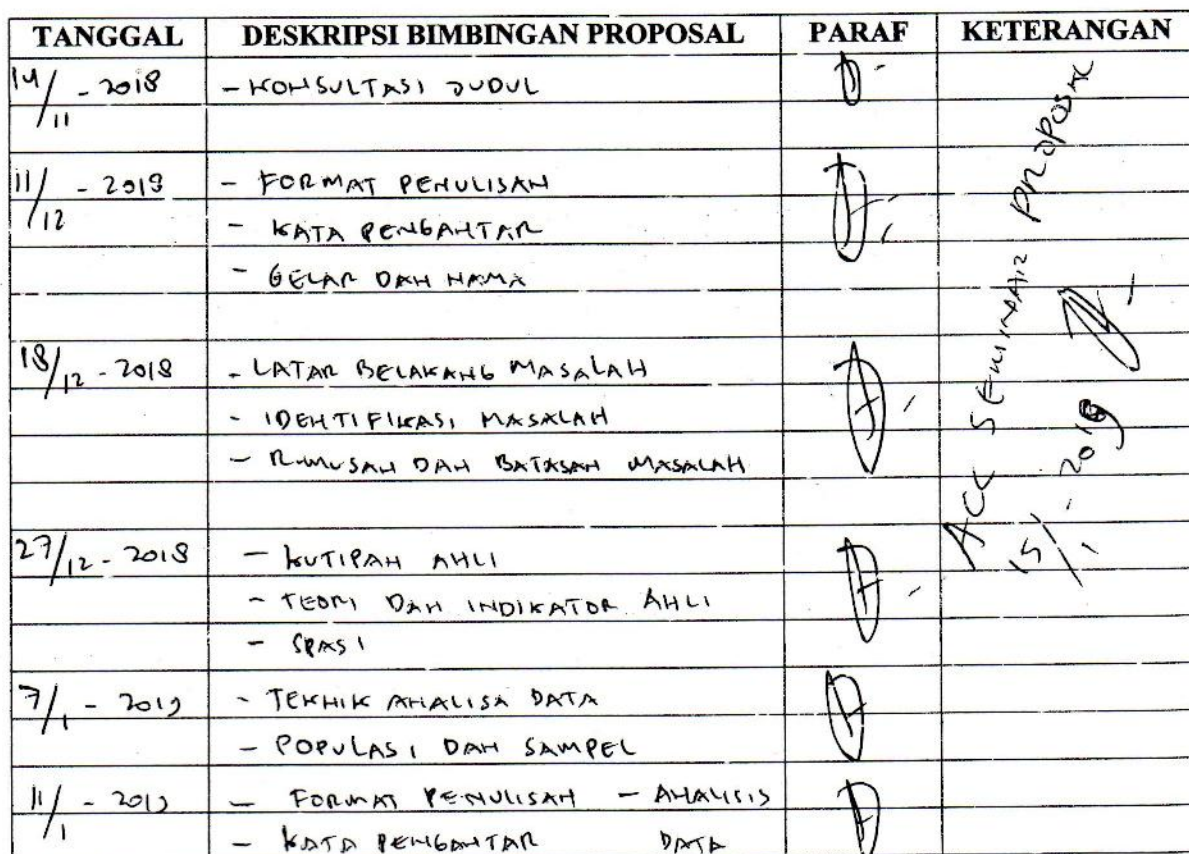 TANGGAL DESKRIPSI BIMBINGAN PROPOSAL PARAF KETERANGAN
14/11 - 2018 - KONSULTASI JUDUL
11/12 - 2018 - FORMAT PENULISAN
- KATA PENGANTAR
- GELAR DAN NAMA
18/12 - 2018 - LATAR BELAKANG MASALAH
- IDENTIFIKASI MASALAH
- RUMUSAN DAN BATASAN MASALAH
27/12 - 2018 - KUTIPAN AHLI
- TEORI DAN INDIKATOR AHLI
- SPASI
7/1 - 2019 - TEKNIK ANALISA DATA
- POPULASI DAN SAMPEL
11/1 - 2019 - FORMAT PENULISAN - ANALISIS
- KATA PENGANTAR DATA
ACC SEMINAR PROPOSAL
15/1 - 2019